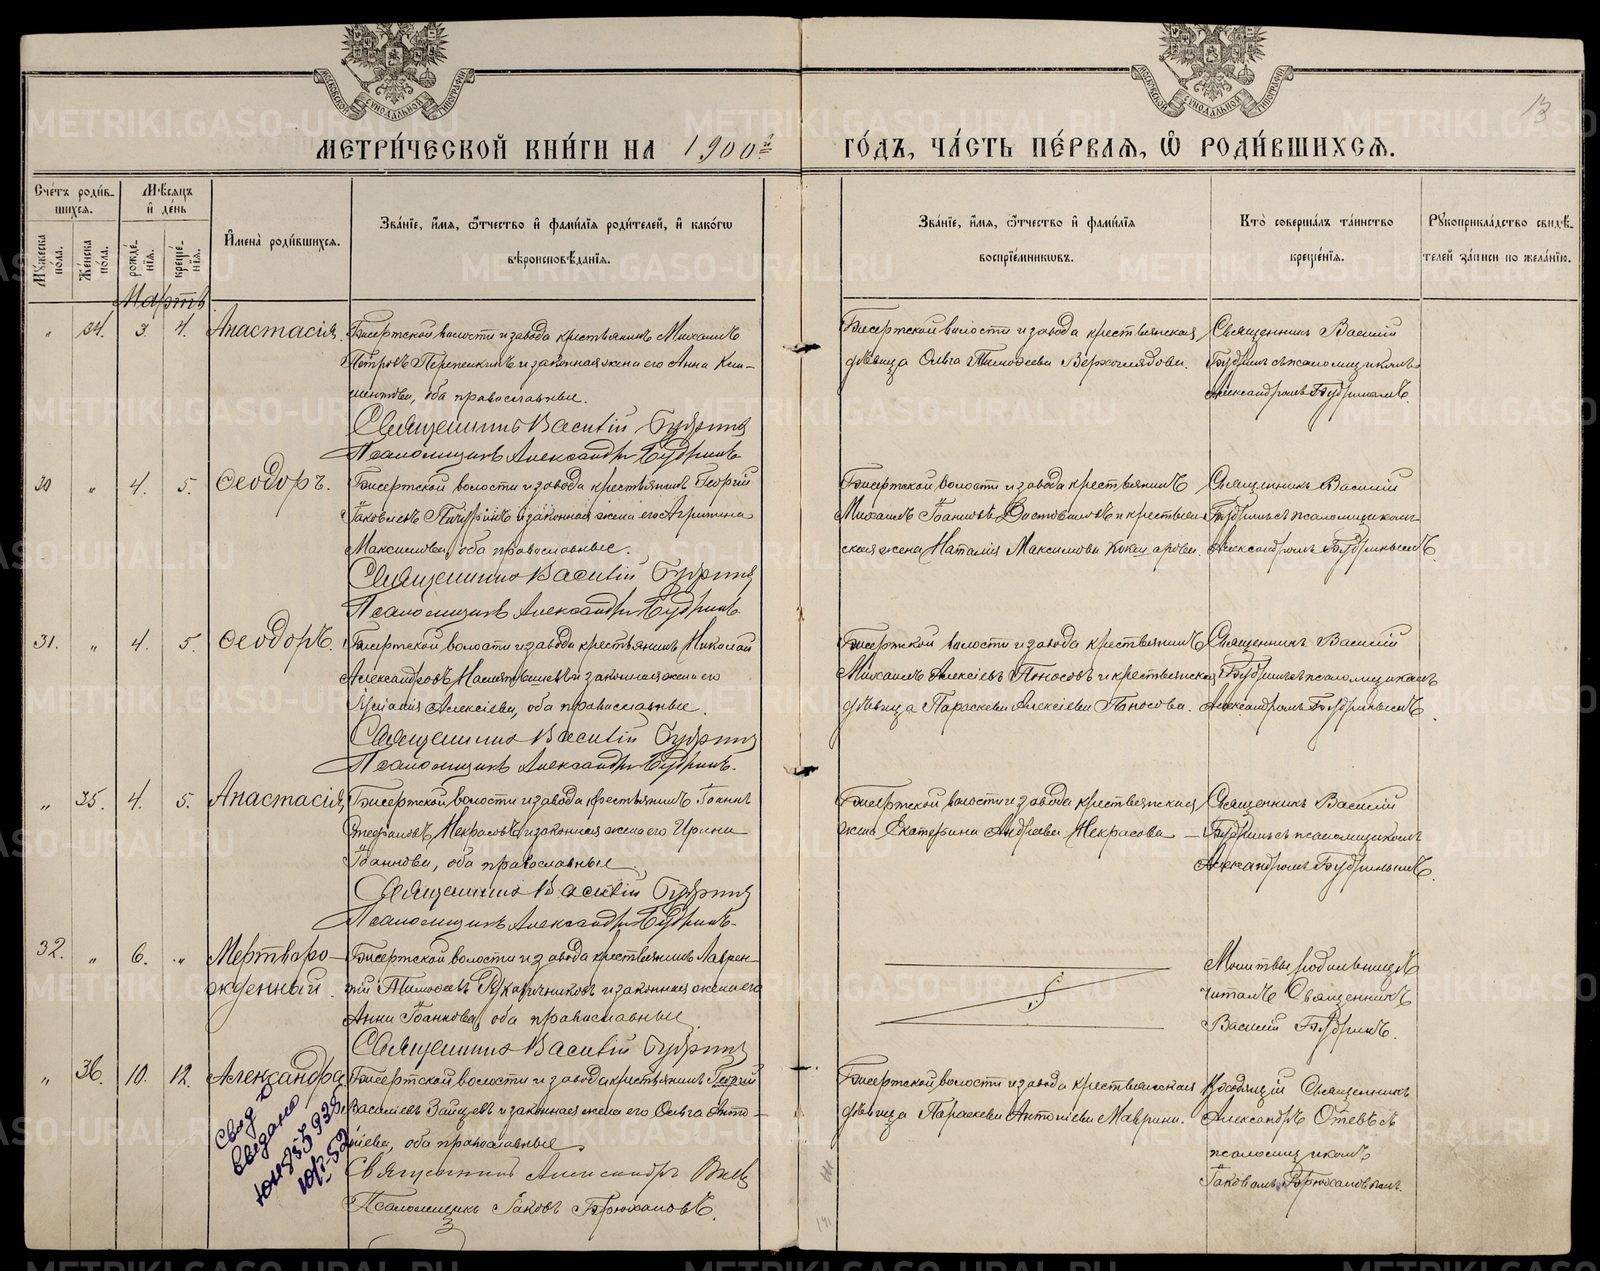 МЕТРИ́ЧЕСКОЙ КНИ́ГИ НА 1900й ГО́ДЪ, ЧА́СТЬ ПЕ́РВАѦ, Ѡ РОДИ́ВШИХСѦ.
13
Сче́тъ роди́в-
шихсѧ.
Мѣсѧцъ
и день
Мꙋжеска по́ла.
Же́нска по́ла.
рожде́-
нїѧ.
креще́-
нїѧ.
И҆мена̀ роди́вшихсѧ.
Зва́нїе, и҆́мѧ, ѻ҆́тчество и҆ фами́лїѧ роди́телей, и҆ како́гѡ
вѣроисповѣ́данїѧ.
Зва́нїе, и҆́мѧ, ѻ҆́тчество и҆ фами́лїѧ
воспрїе́мниковъ.
Кто̀ соверша́лъ та́инство
креще́нїѧ.
Рꙋкоприкла́дство свидѣ́-
телей за́писи по жела́нїю.
Мартъ
„ 34. 3. 4. Анастасія.
Бисертской волости и завода крестьянинъ Михаилъ
Петровъ и законная жена его Анна Кли-
ментова, оба православные.
Священникъ Василій Будринъ
Псаломщикъ Александръ Будринъ
Бисертской волости и завода крестьянская
дѣвица Ольга Тимофеева
Священникъ Василій
Будринъ съ псаломщикомъ
Александромъ Будринымъ.
30 „ 4. 5. Ѳеодоръ.
Бисертской волости и завода крестьянинъ Георгій
Іаковлевъ и законная жена его Агрипина
Максимова, оба православные.
Священникъ Василій Будринъ
Псаломщикъ Александръ Будринъ.
Бисертской волости и завода крестьянинъ
Михаилъ Іоанновъ и крестьян-
ская жена Наталія Максимова
Священникъ Василій
Будринъ съ псаломщикомъ
Александромъ Будринымъ.
31. „ 4. 5. Ѳеодоръ.
Бисертской волости и завода крестьянинъ Николай
Александровъ и законная жена его
Алексіева, оба православные.
Священникъ Василій Будринъ
Псаломщикъ Александръ Будринъ.
Бисертской волости и завода крестьянинъ
Михаилъ Алексіевъ Поносовъ и крестьянская
дѣвица Параскева Алексіева Поносова.
Священникъ Василій
Будринъ съ псаломщикомъ
Александромъ Будринымъ.
„ 35. 4. 5. Анастасія.
Бисертской волости и завода крестьянинъ Іоаннъ
Стефановъ Некрасовъ и законная жена его Ирина
Іоаннова, оба православные.
Священникъ Василій Будринъ
Псаломщикъ Александръ Будринъ.
Бисертской волости и завода крестьянская
жена Екатерина Андреева Некрасова —
Священникъ Василій
Будринъ съ псаломщикомъ
Александромъ Будринымъ.
32. „ 6. „ Мертворо-
жденный.
Бисертской волости и завода крестьянинъ Лаврен-
тій Тимофеевъ и законная жена его
Анна Іоаннова, оба православные.
Священникъ Василій Будринъ
Молитвы родильницѣ
читалъ Священникъ
Василій Будринъ.
„ 36. 10. 12. Александра
Бисертской волости и завода крестьянинъ Георгій
Василіевъ Зайцевъ и законная жена его Ольга Анто-
ніева, оба православные
Священникъ Александръ
Псаломщикъ Іаковъ Брюхановъ.
Бисертской волости и завода крестьянская
дѣвица Параскева Антоніева Маврина.
Священникъ
Александръ съ
псаломщикомъ
Іаковомъ Брюхановымъ.
METRIKI.GASO-URAL.RU